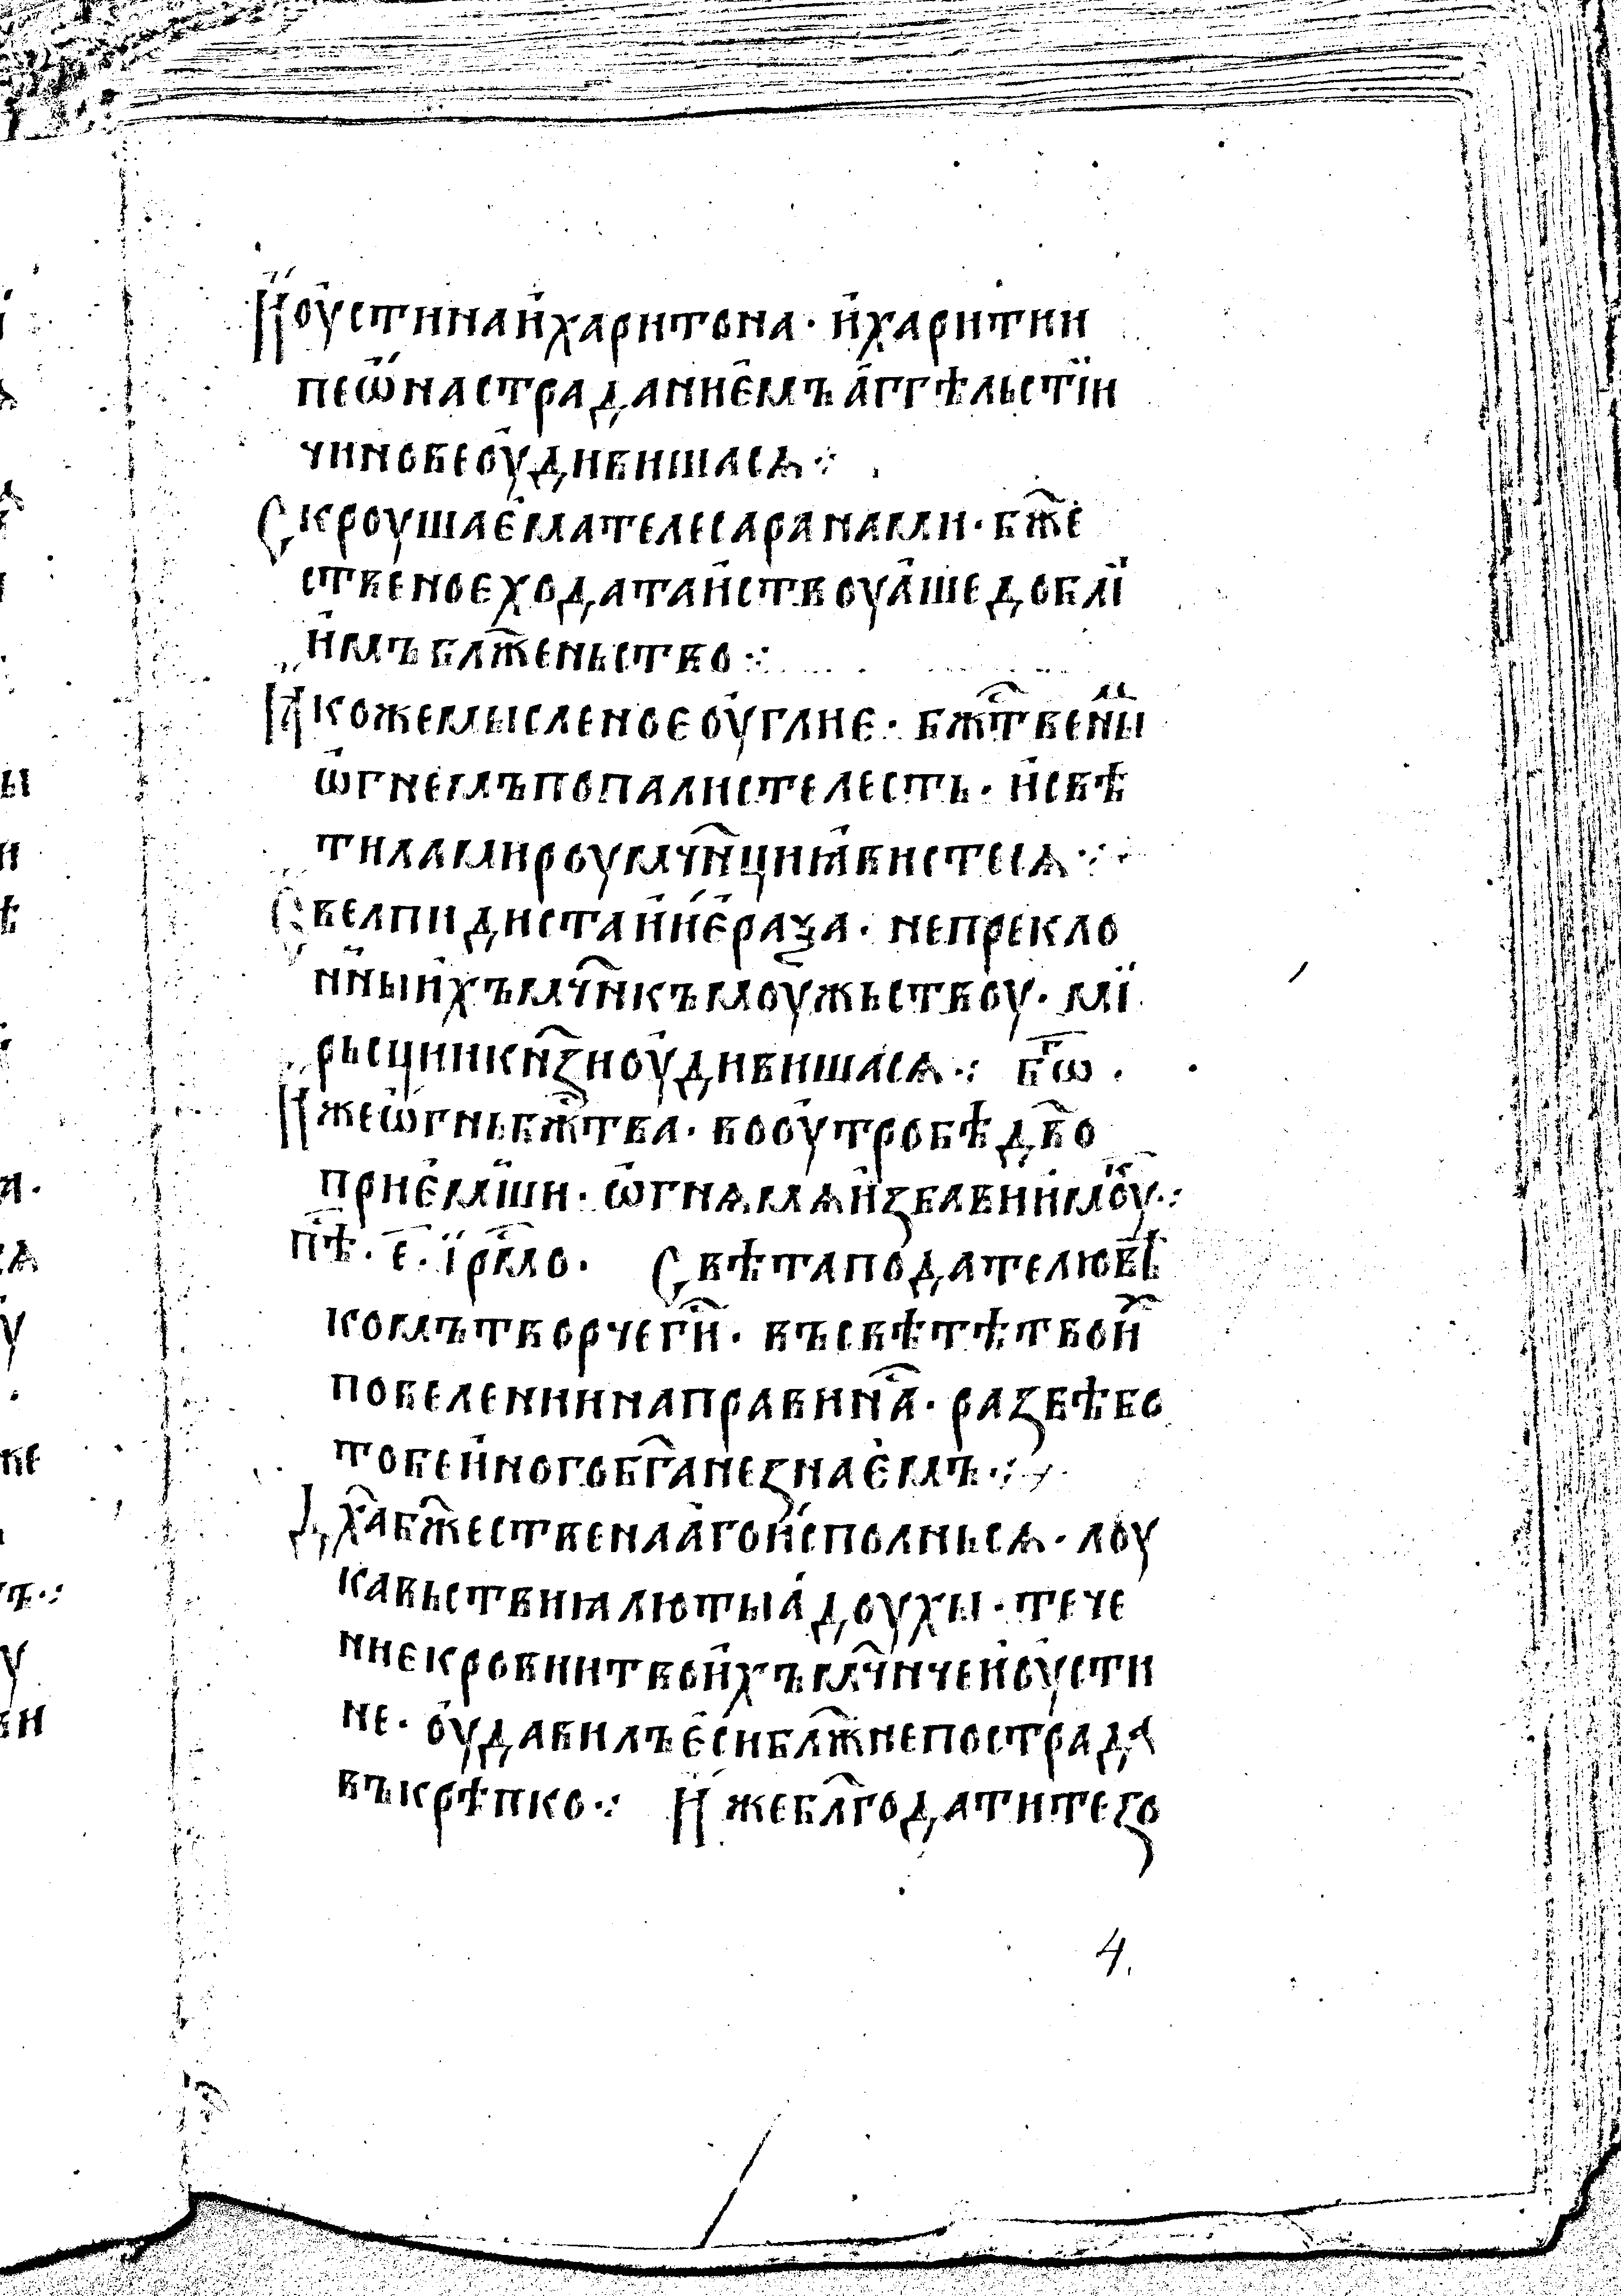 Иоустина и҆харитона · и҆харити и
пеѡ҆на страданиемъ а҆ггѣльстїи
чинове оу҆дивишасѧ ⁘
Скроушаѥма телеса ранами · бж҃е
ствено є ходатаи҆ствоуа҆ше доблї
и҆мъ блж҃еньство ⁘
Ꙗкоже мысленоє оу҆глие · бжт҃вены
ѡ҆гнемъ попали стелесть · и҆свѣ
тила мироу мчн҃ци ꙗ҆вистесѧ ⁘
Свелпидиста и҆и҆є҆раѯа · непрекло
нныи҆хъ мчн҃къ моужьствоу · мї
рьсции кнѧ҃ꙁи оу҆дивишасѧ ⁘ бг҃ѡ ·
Иже ѡ҆гнь бжт҃ва · во оу҆тробѣ дв҃о
приє҆мши · ѡ҆гнѧ мѧ и҆ꙁбави и҆ моу҆к ⁘
пѣ҃ · є · ї҆рм҃ло · Свѣта подателю вѣ
комъ творче гн҃ · въ свѣтѣ твои҆х
повелении направи на҃с · раꙁвѣ бо
тобе и҆ного бг҃а не ꙁнаѥ҆мъ ⁘
Дх҃а бж҃ественаа҆го и҆сполньсѧ · лоу
кавьствиꙗ лютыа҆ доухы · тече
ниє крови и твои҆хъ мчн҃че и҆оу҆сти
не · оу҆давилъ є҆си блж҃не пострада
въ крѣпко ⁘ Иже блг҃одатите ꙁо
4.